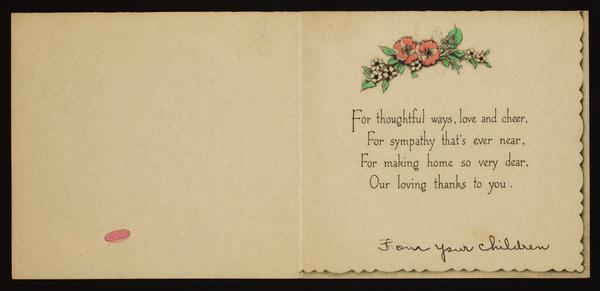 For thoughtful ways, love and cheer,
For sympathy that's ever near,
For making home so very dear,
Our loving thanks to you.
Four your children